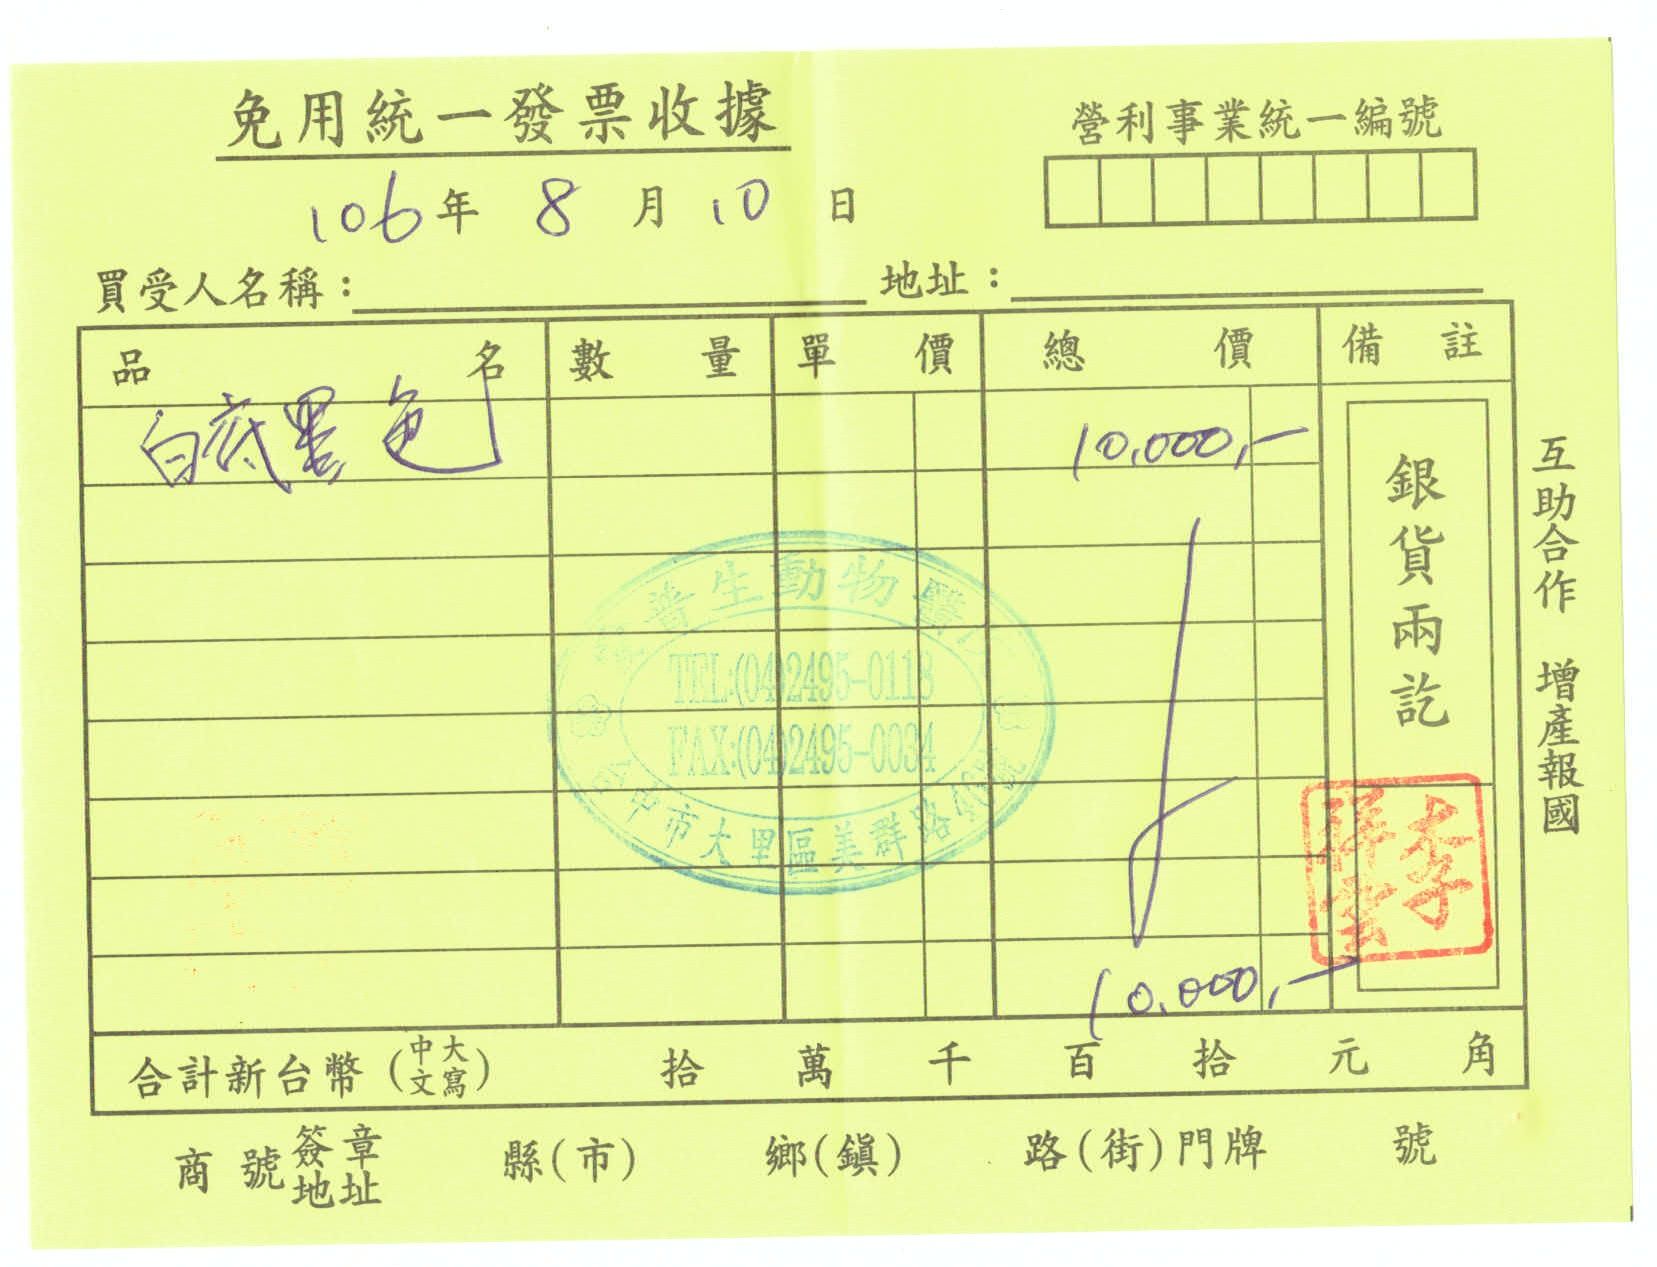 免用統一發票收據
營利事業統一編號
106年 8 月 10 日
買受人名稱：
地址：
品 名 數 量 單 價 總 價 備 註
白底黑色 10,000,-
銀貨兩訖
互助合作 增產報國
普生動物醫
TEL:(04)2495-0118
FAX:(04)2495-0034
台中市大里區美群路
李
祥
10,000,-
合計新台幣(中文大寫) 拾 萬 千 百 拾 元 角
商號簽章地址 縣(市) 鄉(鎮) 路(街)門牌 號